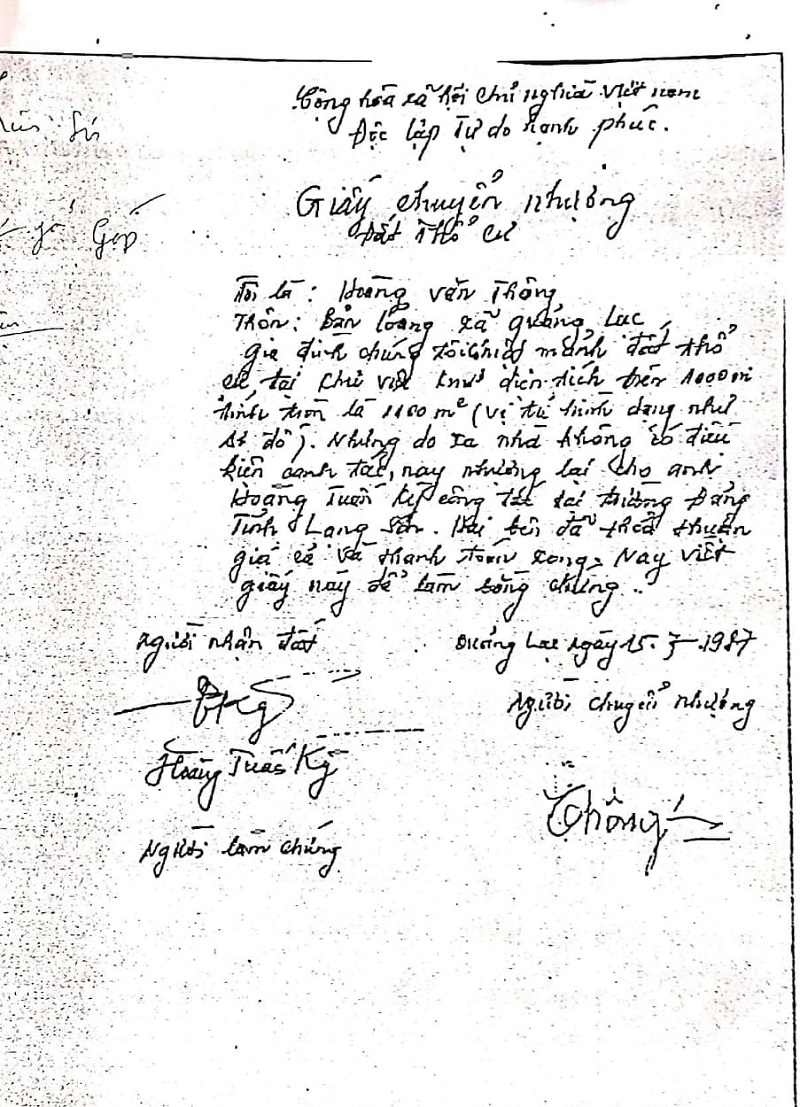 Cộng hòa xã hội chủ nghĩa việt nam
Độc lập Tự do hạnh phúc.
Giấy chuyển nhượng
Đất Thổ cư
Tôi là : Hoàng văn Thông
Thôn : Bản loỏng xã quảng Lạc
gia đình chúng tôi có mảnh đất thổ
cư, tại khu diện tích trên 1000 m
tính tròn là 1100 m² (vị trí hình dạng như
sơ đồ). Nhưng do xa nhà không có điều
kiện canh tác, nay nhượng lại cho anh
Hoàng Tuấn Kỳ công tác tại trường Đảng
Tỉnh Lạng Sơn. Hai bên đã thoả thuận
giá cả và thanh toán xong, Nay viết
giấy này để làm bằng chứng ..
Người nhận đất
Quảng Lạc ngày 15. 7 - 1987
Người chuyển nhượng
Hoàng Tuấn Kỳ
Thông
Người làm chứng
Góp